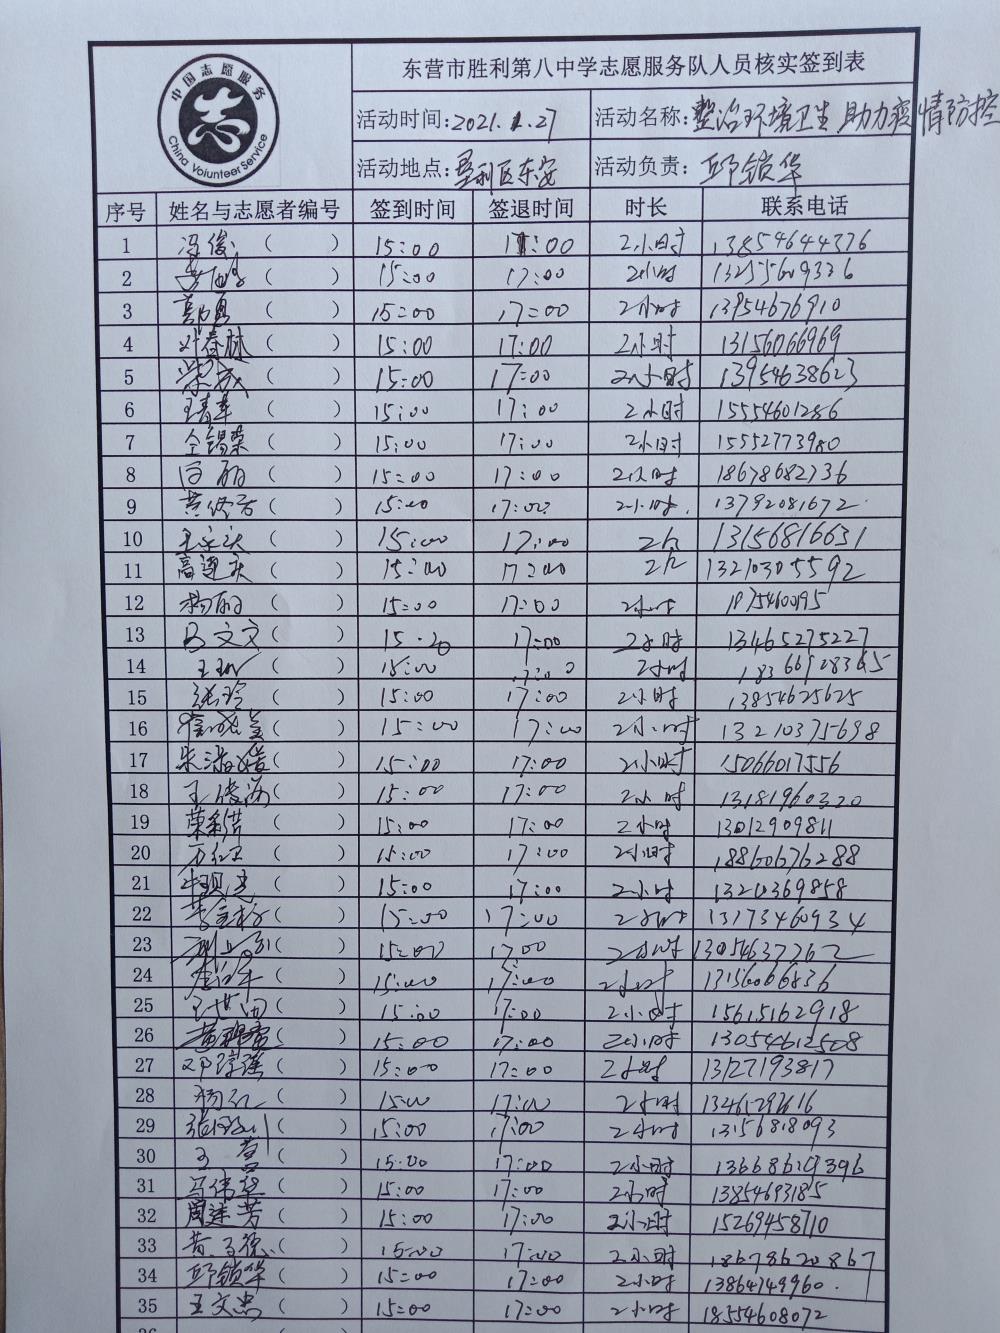 中国志愿服务
China Volunteer Service
东营市胜利第八中学志愿服务队人员核实签到表
活动时间: 2021.1.27 活动名称: 整治环境卫生 助力疫情防控
活动地点: 垦利区东安 活动负责: 邱锁华
序号 姓名与志愿者编号 签到时间 签退时间 时长 联系电话
1 冯俊 ( ) 15:00 17:00 2小时 13854644376
2 ( ) 15:00 17:00 2小时 13255609336
3 ( ) 15:00 17:00 2小时 13954676910
4 叶春林 ( ) 15:00 17:00 2小时 13156066969
5 ( ) 15:00 17:00 2小时 13954638623
6 王青华 ( ) 15:00 17:00 2小时 15554601286
7 仝锡荣 ( ) 15:00 17:00 2小时 15552773980
8 闫丽 ( ) 15:00 17:00 2小时 18678682736
9 ( ) 15:00 17:00 2小时. 13792081672
10 ( ) 15:00 17:00 2h 13156816631
11 高建庆 ( ) 15:00 17:00 2h 13210305592
12 杨丽 ( ) 15:00 17:00 2小时
13 吕文文 ( ) 15:20 17:00 2小时 13465275227
14 ( ) 15:00 17:00 2小时 18366928365
15 张玲 ( ) 15:00 17:00 2小时 13854625625
16 ( ) 15:00 17:00 2小时 13210375698
17 ( ) 15:00 17:00 2小时 15066017556
18 ( ) 15:00 17:00 2小时 13181960320
19 ( ) 15:00 17:00 2小时 13012909811
20 石红卫 ( ) 15:00 17:00 2小时 18860676288
21 ( ) 15:00 17:00 2小时 13210369858
22 ( ) 15:00 17:00 2小时 13173460934
23 ( ) 15:00 17:00 2小时 13054637262
24 ( ) 15:00 17:00 2小时 13156066836
25 ( ) 15:00 17:00 2小时 15615162918
26 ( ) 15:00 17:00 2小时 13054612508
27 邓瑞莲 ( ) 15:00 17:00 2小时 13127193817
28 杨红 ( ) 15:00 17:00 2小时 13465292616
29 ( ) 15:00 17:00 2小时 13156818093
30 ( ) 15:00 17:00 2小时 13668619396
31 马伟华 ( ) 15:00 17:00 2小时 13854693185
32 周建芳 ( ) 15:00 17:00 2小时 15269458710
33 ( ) 15:00 17:00 2小时 18678620867
34 邱锁华 ( ) 15:00 17:00 2小时 13864749960.
35 王文忠 ( ) 15:00 17:00 2小时 18554608072